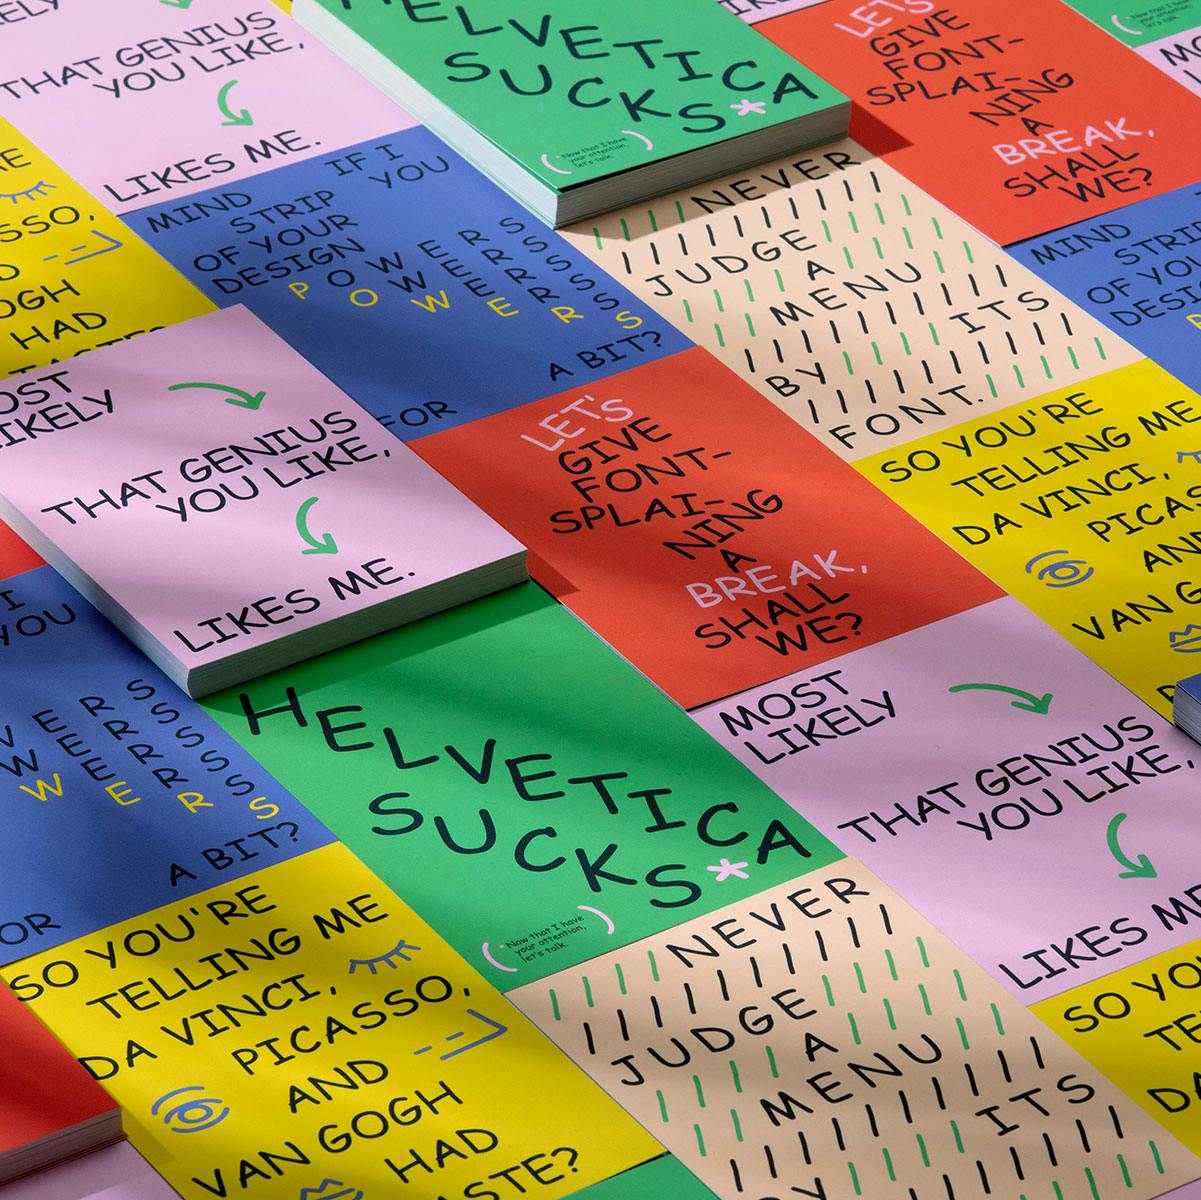 LIKELY
THAT GENIUS
YOU LIKE,
LIKES ME.
HELVETICA
SUCKS*
(*Now that I have
your attention,
let's talk.)
LET'S
GIVE
FONT-
SPLAI-
NING
A
BREAK,
SHALL
WE?
MIND IF I
STRIP YOU
OF YOUR
DESIGN
POWERS
A BIT?
FOR
NEVER
JUDGE
A
MENU
BY ITS
FONT.
MIND
STRIP
OF YOUR
DESIGN
SSO,
OGH
HAD
MOST
LIKELY
THAT GENIUS
YOU LIKE,
LIKES ME.
LET'S
GIVE
FONT-
SPLAI-
NING
A
BREAK,
SHALL
WE?
SO YOU'RE
TELLING ME
DA VINCI,
PICAS
AN
VAN G
I
YOU
WERS
A BIT?
OR
HELVETICA
SUCKS*
(*Now that I have
your attention,
let's talk.)
MOST
LIKELY
THAT GENIUS
YOU LIKE,
LIKES ME
SO YOU'RE
TELLING ME
DA VINCI,
PICASSO,
AND
VAN GOGH
HAD
ASTE?
NEVER
JUDGE
A
MENU
BY ITS
SO YOU
TE
DA